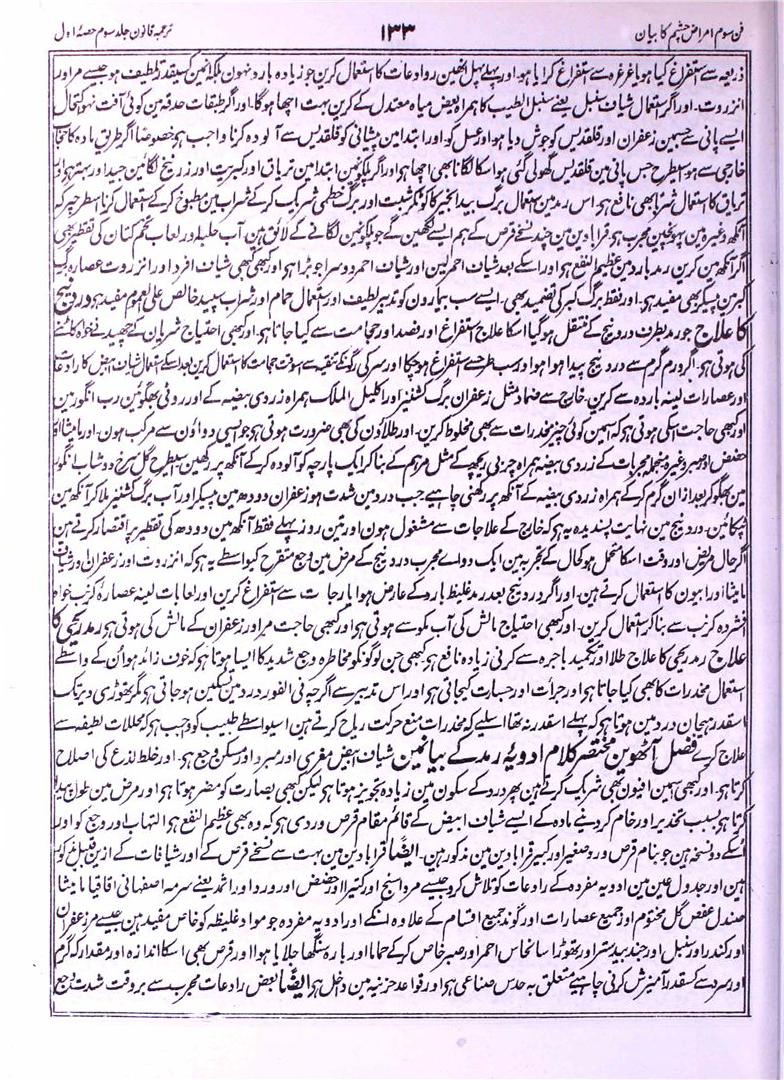 فن سوم امراض چشم کا بیان
۱۳۳
ترجمہ قانون جلد سوم حصۂ اول
ذریعہ سے استفراغ کیا ہو یا غرغرہ سے استفراغ کرایا ہو۔ اور پہلے پہل انھین رواد عات کا استعمال کرین جو زیادہ بارد نہون بلکہ انمین کسیقدر تلطیف ہو جیسے مر اور
انزروت۔ اور اگر استعمال شیاف سنبل یعنے سنبل الطیب کا ہمراہ بعض میاہ معتدل کے کرین بہت اچھا ہوگا۔ اور اگر طبقات حدقہ مین کوئی آفت نہو اکتحال
ایسے پانی سے جسمین زعفران اور قلقدیس کو جوش دیا ہو اور عسل کو۔ اور ابتدا مین پیشانی کو قلقدیس سے آلودہ کرنا واجب ہو خصوصاً اگر طریق مادہ کا حجاب
خارجی سے ہو اسطرح جس پانی مین قلقدیس گھولی گئی ہو اسکا لگانا بھی اچھا ہو اور اگر پلکونمین ابتدا مین تریاق اور کبریت اور زرنیخ لگائین جید اور بہتر ہو اور
تریاق کا استعمال شرباً بھی نافع ہو۔ اس رمد مین استعمال برگ بید انجیر کا کوٹکر شبت اور برگ خطمی شریک کرکے شراب مین مطبوخ کرکے استعمال کرنا اسطرح پر کہ
آنکھ وغیرہ مین پہونچین مجرب ہو۔ قرابادین مین چند نسخے قرص کے ہم ایسے لکھین گے جو پلکونمین لگانے کے لائق ہین۔ آب حلبہ اور لعاب تخم کتان کی تقطیر بھی
اگر آنکھ مین کرین رمد بارد مین عظیم النفع ہو اور اسکے بعد شیاف احمر لین اور شیاف احمر دوسرا جو بڑا ہو اور کبھی کبھی شیاف افرد اور انزروت عصارہ برگ
کبر مین پیسکر بھی مفید ہو۔ اور فقط برگ کبر کی تضمید بھی۔ ایسے سب بیمارون کو تدبیر لطیف اور استعمال حمام اور شراب سپید خالص علی العموم مفید ہو وردینج
کا علاج جو رمد بطرف وردینج کے منتقل ہو گیا اسکا علاج استفراغ اور فصد اور حجامت سے کیا جاتا ہو۔ اور کبھی احتیاج شریان کے چھیدنے خواہ کاٹنے
کی ہوتی ہو۔ اگر ورم گرم سے وردینج پیدا ہوا ہو اور سب طرح سے استفراغ ہو چکا اور سر کی رگونکے تنقیہ سے اسوقت حجامت کا استعمال کرین بعد اسکے استعمال شیاف ابیض کا رادعات
اور عصارات لینہ باردہ سے کرین۔ خارج سے ضماد مثل زعفران برگ کشنیز اور اکلیل الملک ہمراہ زردی بیضہ کے اور روٹی بھگوئین رب انگور مین
اور کبھی حاجت اسکی ہوتی ہو کہ اسمین کوئی چیز مخدرات سے بھی مخلوط کرین۔ اور طلاؤن کی بھی ضرورت ہوتی ہو جو اسی دواؤن سے مرکب ہون۔ اور مامیثا اور
حضض اور صبر وغیرہ منجملہ مجربات کے زردی بیضہ ہمراہ چربی ریچھ کے مثل مرہم کے بنا کر ایک پارچہ کو آلودہ کرکے آنکھ پر رکھین اسیطرح گل سرخ دوشاب انگور
مین بھگو کر بعد ازان گرم کرکے ہمراہ زردی بیضہ کے آنکھ پر رکھنی چاہیے جب درد مین شدت ہو زعفران دودھ مین پیسکر اور آب برگ کشنیز ملا کر آنکھ مین
ٹپکائین۔ وردینج مین نہایت پسندیدہ یہ ہو کہ خارج کے علاجات سے مشغول ہون اور تین روز پہلے فقط آنکھ مین دودھ کی تقطیر پر اقتصار کرتے ہین
اگر حال مریض اور وقت اسکا متحمل ہو کحال کے تجربہ مین ایک دواے مجرب وردینج کے مرض مین وجع متقرح کیواسطے یہ ہو کہ انزروت اور زعفران اور شیاف
مامیثا اور افیون کا استعمال کرتے ہین۔ اور اگر وردینج بعد رمد غلیظ بارد کے عارض ہوا یارجات سے استفراغ کرین اور لعابات لینہ عصارہ کرنب خواہ
افشردہ کرنب سے بنا کر استعمال کرین۔ اور کبھی احتیاج مالش کی آب مکو سے ہوتی ہو اور کبھی حاجت مر اور زعفران کے مالش کی ہوتی ہو رمد ریحی کا
علاج رمد ریحی کا علاج طلا اور تکمید باجرہ سے کرنی زیادہ نافع ہو کبھی جن لوگونکو مخاطرہ وجع شدید کا ایسا ہوتا ہو کہ خوف زائد ہو اُن کے واسطے
استعمال مخدرات کا بھی کیا جاتا ہو اور جرأت اور جسارت کیجاتی ہو اور اس تدبیر سے اگرچہ فی الفور درد مین تسکین ہو جاتی ہو مگر تھوڑی دیر تک
اسقدر ہیجان درد مین ہوتا ہو کہ پہلے اسقدر نہ تھا اسلیے کہ مخدرات منع حرکت ریاح کرتے ہین اسیواسطے طبیب کو واجب ہو کہ محللات لطیفہ سے
علاج کرے فصل آٹھوین مختصر کلام ادویہ رمد کے بیانمین شیاف ابیض مغری اور مبرد اور مسکن وجع ہو۔ اور خلط لذع کی اصلاح
کرتا ہو۔ اور کبھی اسمین افیون بھی شریک کرتے ہین پھر درد کے سکون مین زیادہ تجویز ہوتا ہو لیکن کبھی بصارت کو مضر ہوتا ہو اور مرض مین طول پیدا
کرتا ہو بسبب تخدیر اور خام کر دینے مادہ کے ایسے شیاف ابیض کے قائم مقام قرص وردی ہو کہ وہ بھی عظیم النفع ہو التہاب اور وجع کو اور
اُسکے دو نسخہ ہین جو بنام قرص ورد صغیر اور کبیر قرابادین مین مذکور ہین۔ ایضاً قرابادین مین بہت سے نسخے قرص کے اور شیافات کے ازین قبیل مذکور
ہین اور جدول عین مین ادویہ مفردہ کے رادعات کو تلاش کرو جیسے مرداسنج اور کتیرا اور حضض اور ورد اور اثمد یعنے سرمہ اصفہانی اقاقیا مامیثا
صندل عفص گل مختوم اور جمیع عصارات اور گوند جمیع اقسام کے علاوہ انکے اور ادویہ مفردہ جو مواد غلیظہ کو خاص مفید ہین جیسے مر زعفران
اور کندر اور سنبل اور جند بیدستر اور تھوڑا سا نحاس احمر اور صبر خاص کر کے حماما اور بارہ سنگھا جلایا ہوا اور قرص بھی اسکا اندازہ اور مقدار کہ گرم
اور سرد سے کسقدر آمیزش کرنی چاہیے متعلق بہ حدس صناعی ہو اور قواعد جزئیہ مین داخل ہو ایضاً بعض رادعات مجرب سے بر وقت شدت وجع